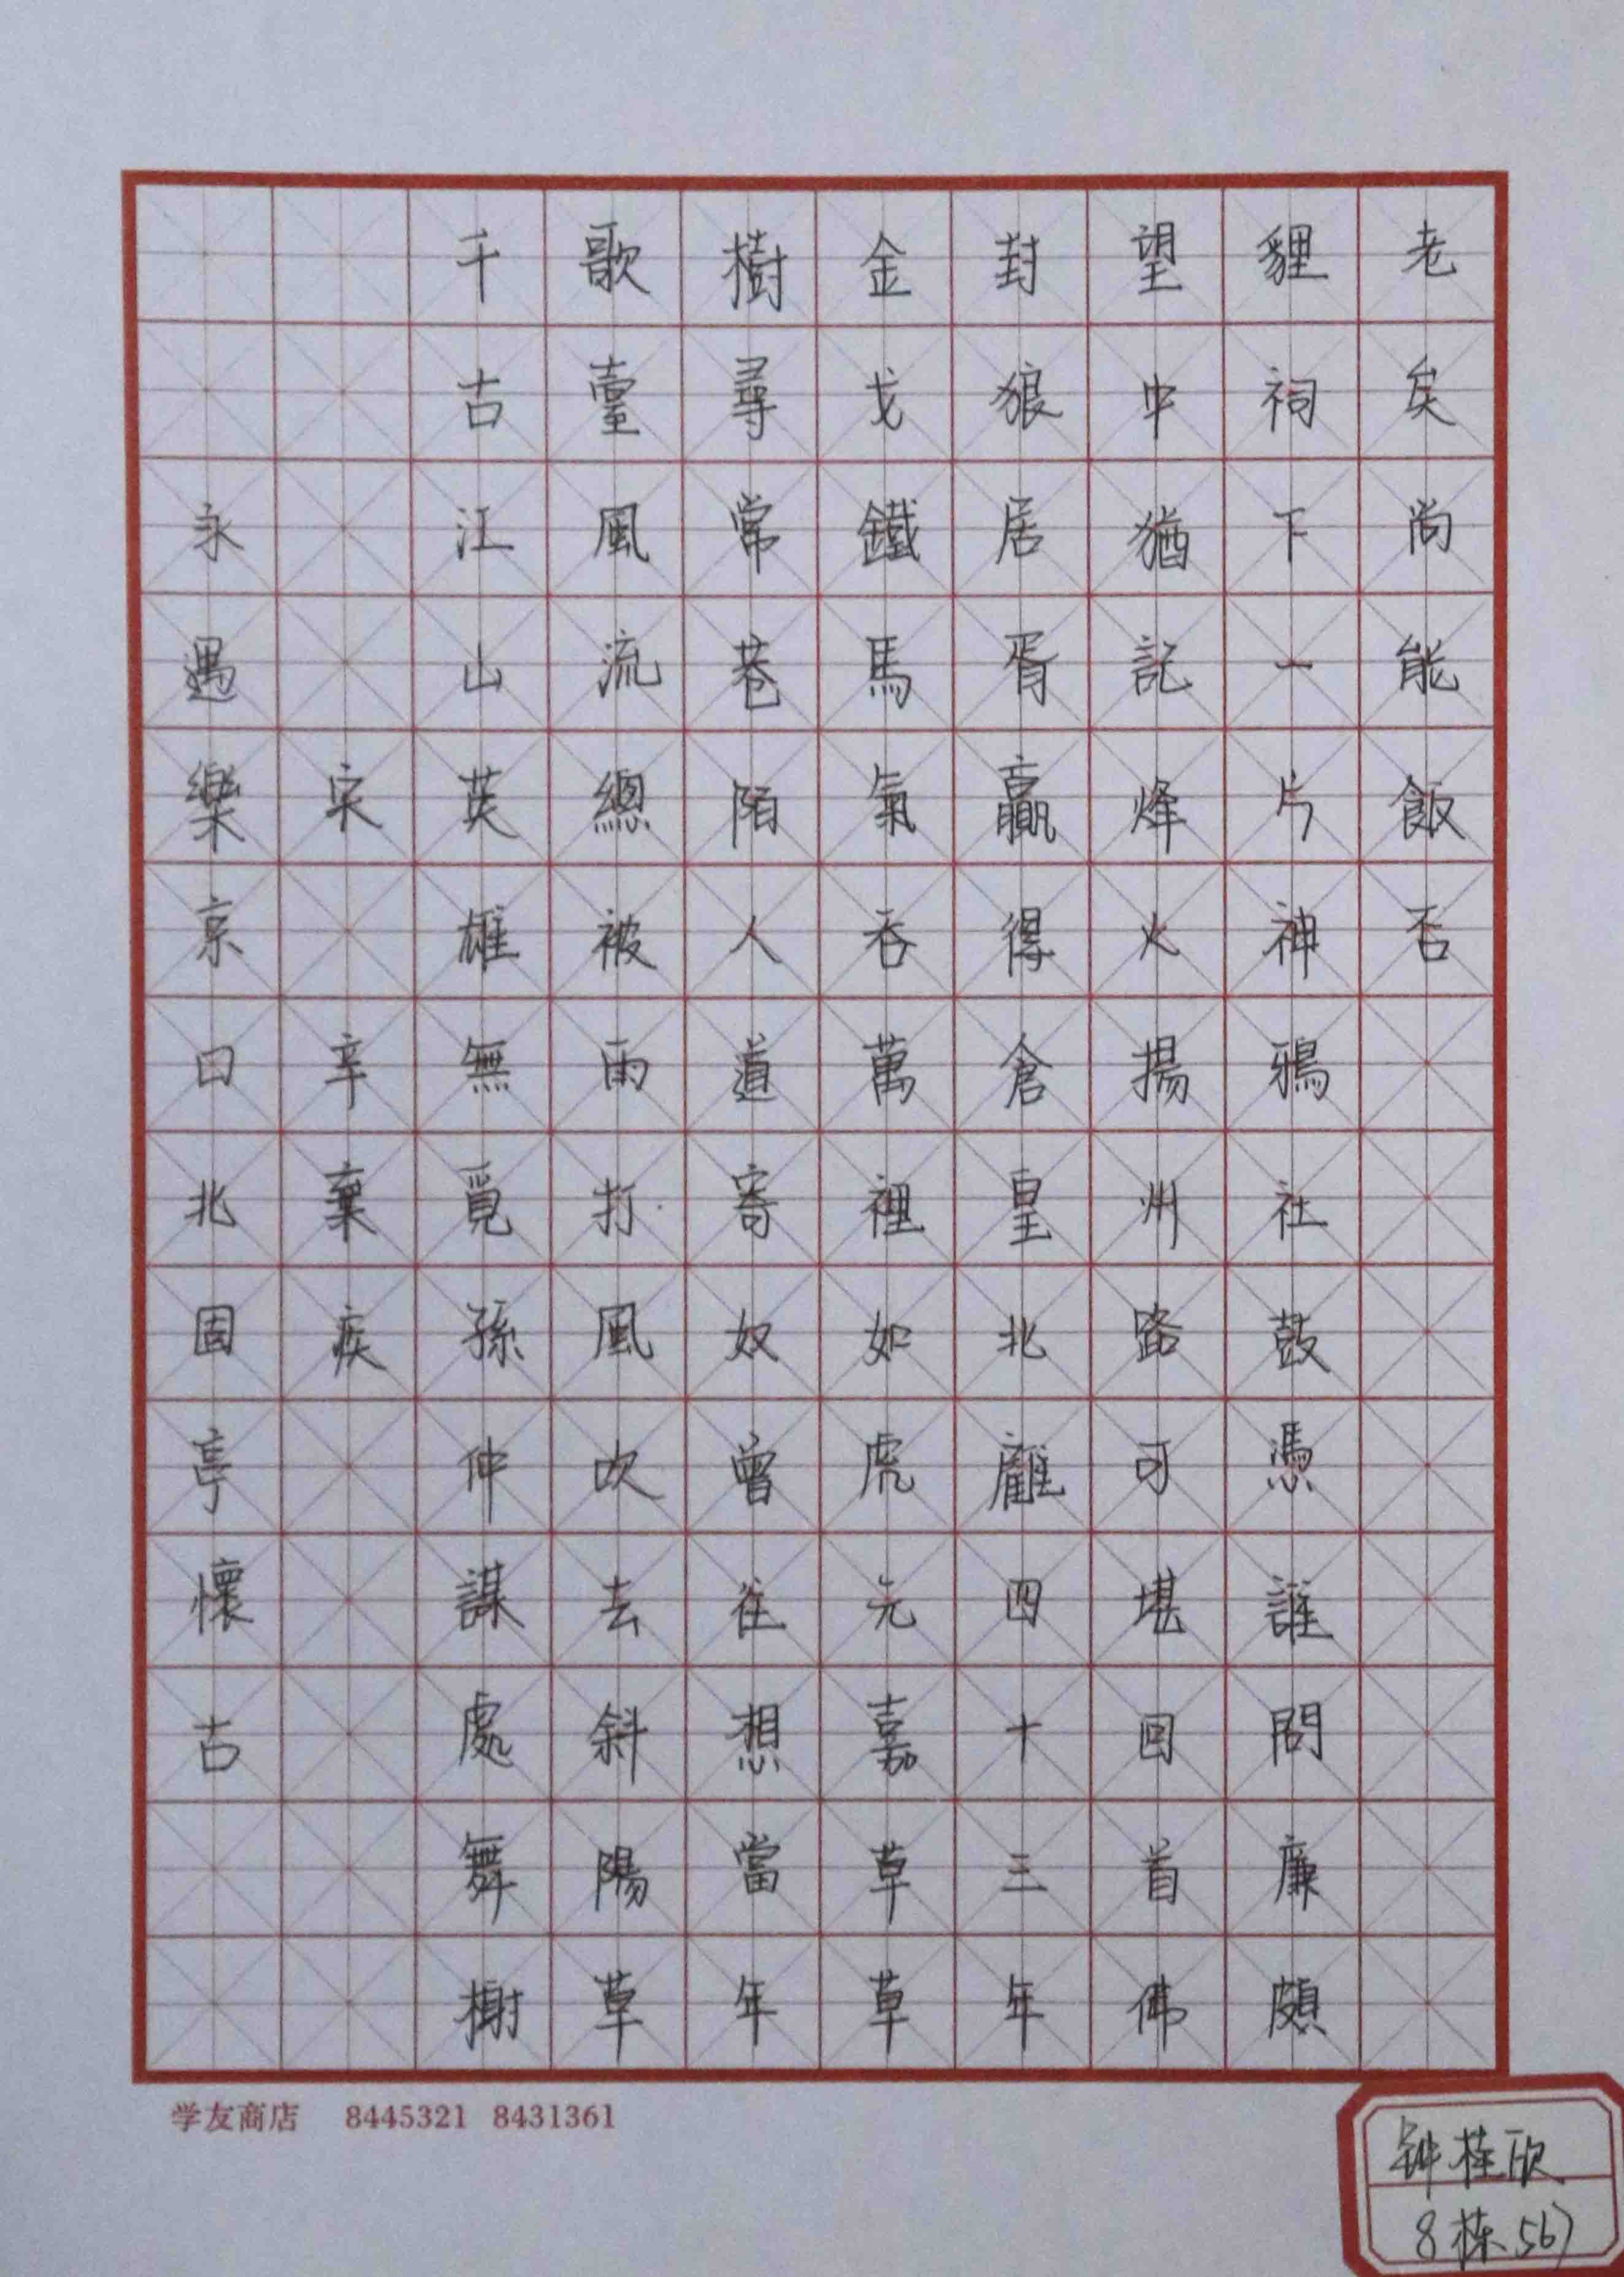 永遇樂京口北固亭懷古
宋 辛棄疾
千古江山英雄無覓孫仲謀處舞榭
歌臺風流總被雨打風吹去斜陽草
樹尋常巷陌人道寄奴曾住想當年
金戈鐵馬氣吞萬裡如虎元嘉草草
封狼居胥贏得倉皇北顧四十三年
望中猶記烽火揚州路可堪回首佛
貍祠下一片神鴉社鼓憑誰問廉頗
老矣尚能飯否
学友商店 8445321 8431361
钟桂欣
8栋567